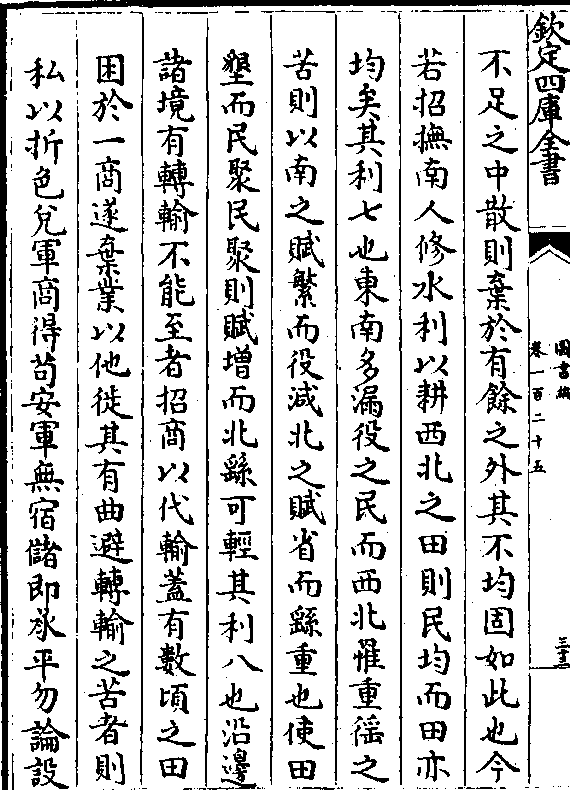 欽定四庫全書
圖書編
卷一百二十五
三十三
不足之中散則棄於有餘之外其不均固如此也今
若招撫南人修水利以耕西北之田則民均而田亦
均矣其利七也東南多漏役之民而西北罹重徭之
苦則以南之賦繁而役減北之賦省而繇重也使田
墾而民聚民聚則賦增而北繇可輕其利八也沿邊
諸境有轉輸不能至者招商以代輸蓋有數頃之田
困於一商遂棄業以他徙其有曲避轉輸之苦者則
私以折色兌軍商得苟安軍無宿儲即承平勿論設